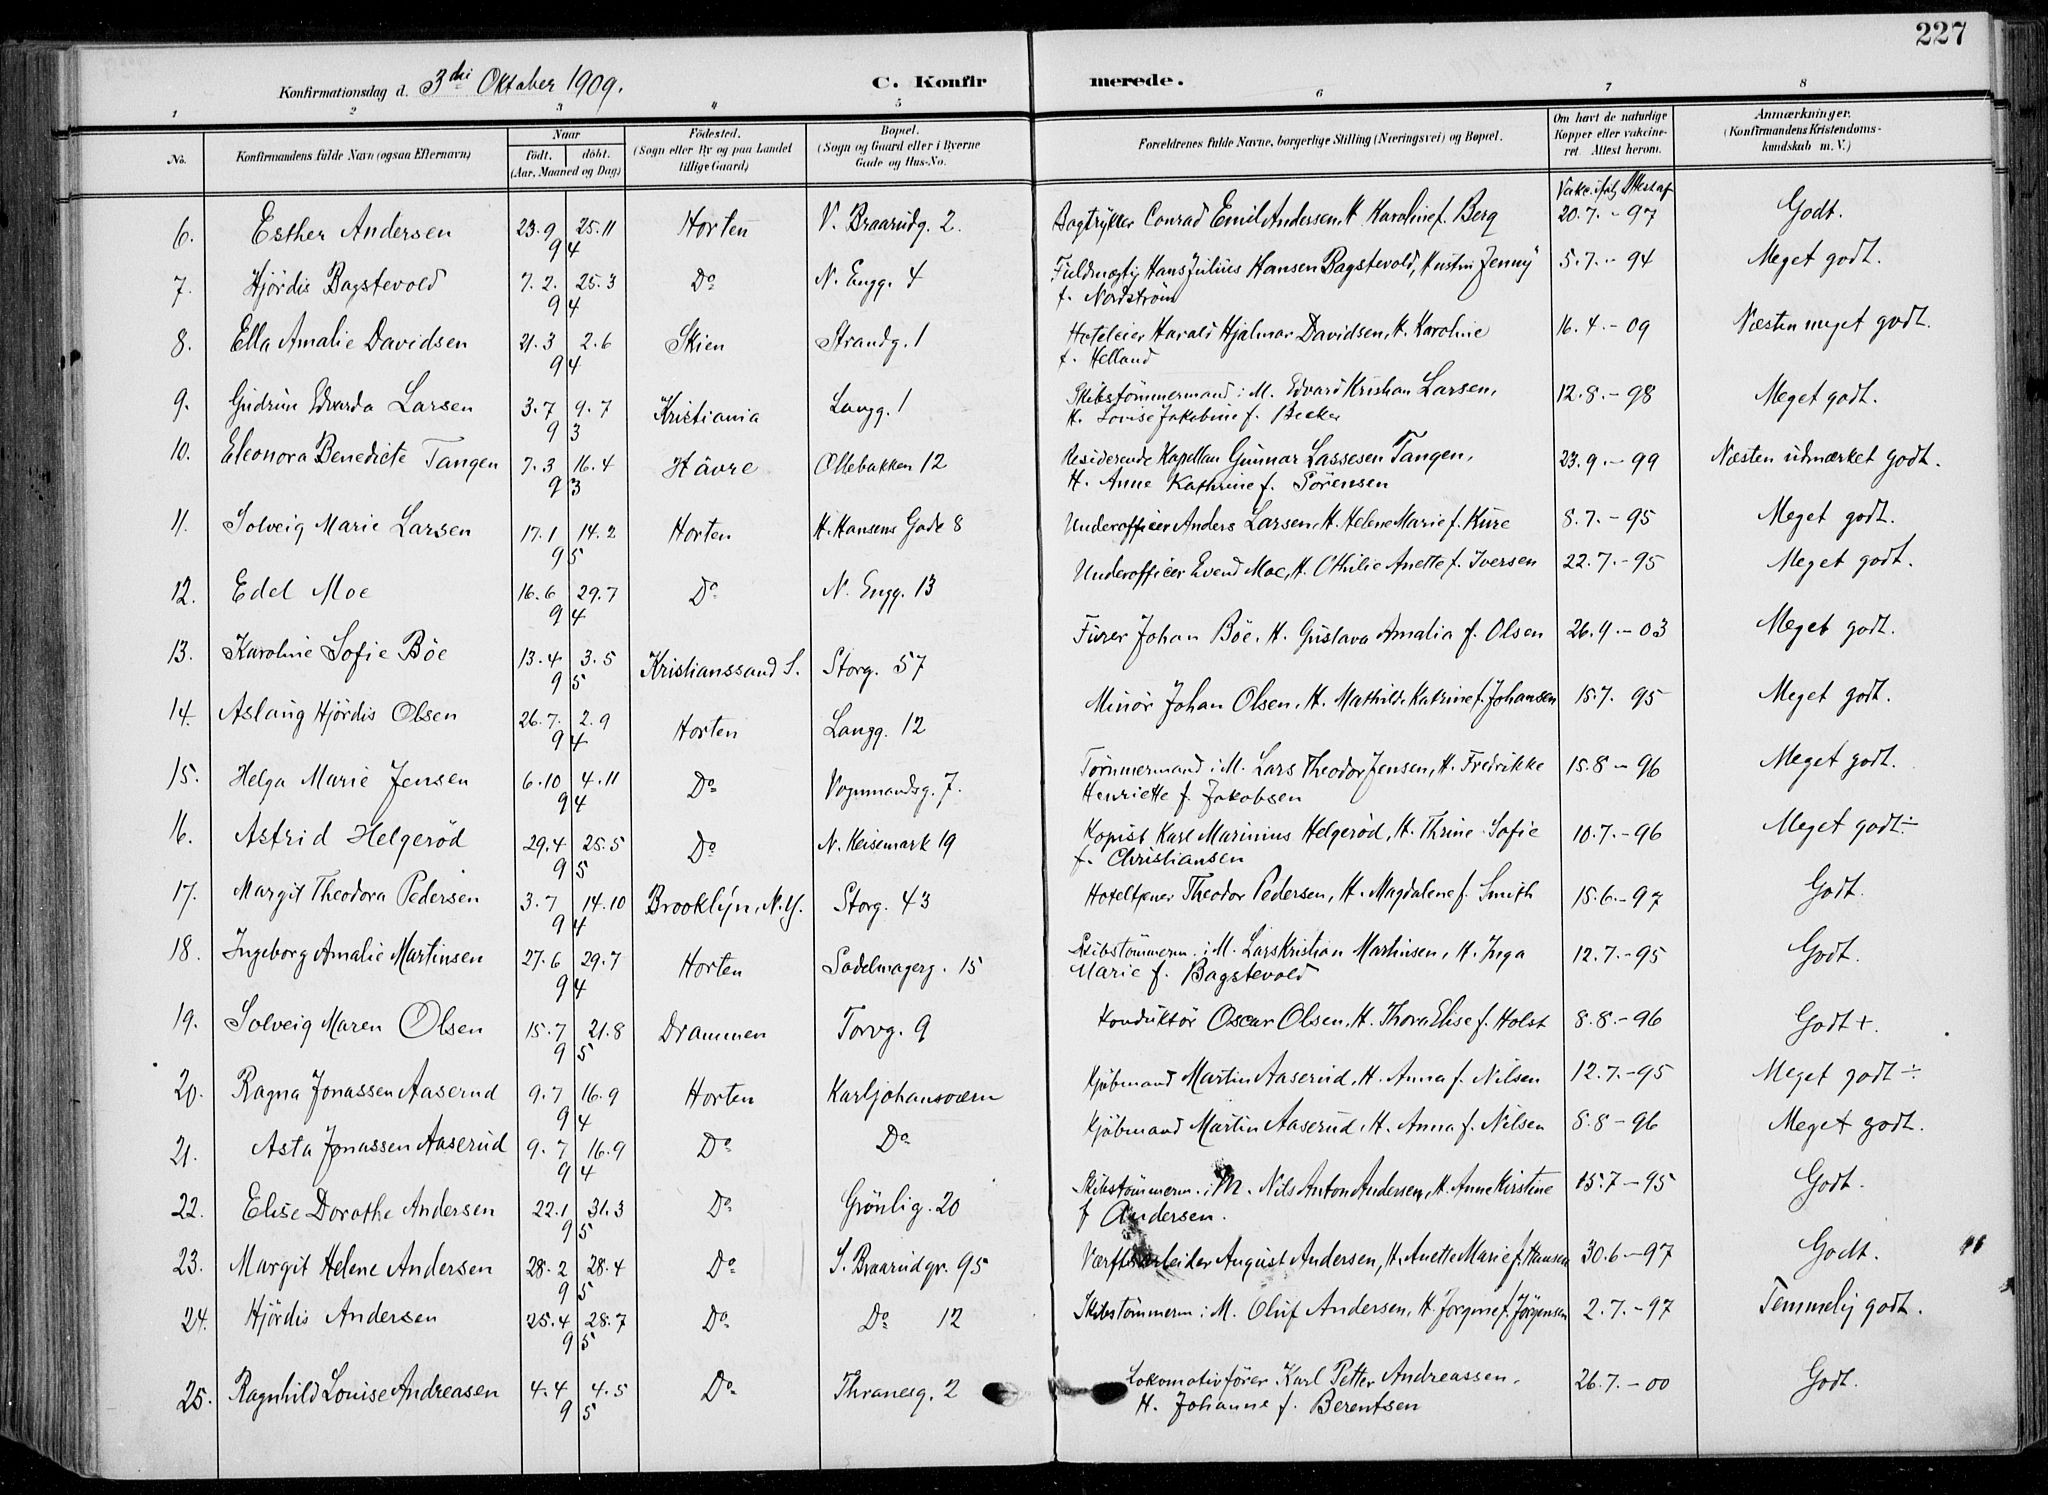 227
Konfirmationsdag d. 3die Oktober 1909. C. Konfirmerede.
1 2 3 4 5 6 7 8
No. Konfirmandens fulde Navn (ogsaa Efternavn) Naar født. døbt. (Aar, Maaned og Dag) Fødested. (Sogn eller By og paa Landet tillige Gaard) Bopæl. (Sogn og Gaard eller i Byerne Gade og Hus-No. Forældrenes fulde Navne, borgerlige Stilling (Næringsvei) og Bopæl. Om havt de naturlige Kopper eller vakcineret. Attest herom. Anmærkninger. (Konfirmandens Kristendomskundskab m. V.)
6. Esther Andersen 23.9 25.11 94 Horten V. Braarudg. 2. Bogtrykker Conrad Emil Andersen, H. Karoline f. Berg Vakc. ifølg Attest af 20.7.-97 Godt.
7. Hjördis Bagstevold 7.2. 25.3 94 Do N. Engg. 4 Fuldmægtig Hans Julius Hansen Bagstevold, Hustru Jenny 5.7.-94 Meget godt.
f. Nordström
8. Ella Amalie Davidsen 21.3 2.6 94 Skien Strandg. 1 Hoteleier Harald Hjalmar Davidsen, H. Karoline 16.4.-09 Næsten meget godt.
f. Helland
9. Gudrun Edvarda Larsen 3.7 9.7 93 Kristiania Langg. 1 Skibstömmermand i M. Edvard Kristian Larsen, 12.8.-98 Meget godt.
H. Lovise Jakobine f. Becker
10. Eleonora Benedicte Tangen 7.3 16.4 93 Håvre Ollebakken 12 Residerende Kapellan Gunnar Lassesen Tangen, 23.9.-99 Næsten udmærket godt.
H. Anne Kathrine f. Sörensen
11. Solveig Marie Larsen 17.1 14.2 95 Horten H. Hansens Gade 8 Underofficer Anders Larsen, H. Helene Marie f. Kure 8.7.-95 Meget godt.
12. Edel Moe 16.6 29.7 94 Do N. Engg. 13 Underofficer Evend Moe, H. Othilie Anette f. Iversen 22.7.-95 Meget godt.
13. Karoline Sofie Böe 13.4 3.5 95 Kristianssand S. Storg. 57 Furer Johan Böe, H. Gustava Amalia f. Olsen 26.9.-03 Meget godt.
14. Aslaug Hjördis Olsen 26.7. 2.9 94 Horten Langg. 12 Minör Johan Olsen, H. Mathilde Katrine f. Johansen 15.7. 95 Meget godt.
15. Helga Marie Jensen 6.10 4.11 94 Do Vognmandsg. 7. Tömmermand i M. Lars Theodor Jensen, H. Fredrikke 15.8-96 Meget godt.
Henriette f. Jakobsen
16. Astrid Helgeröd 29.4 25.5 95 Do N. Keisemark 19 Kopist Karl Marinius Helgeröd, H. Thrine Sofie 10.7.-96 Meget godt÷
f. Christiansen
17. Margit Theodora Pedersen 3.7 14.10 94 Brooklyn, N.Y. Storg. 43 Hoteltjener Theodor Pedersen, H. Magdalene f. Smith 15.6.-97 Godt.
18. Ingeborg Amalie Martinsen 27.6 29.7 94 Horten Sadelmagerg. 15 Skibstömmerm. i M. Lars Kristian Martinsen, H. Inga 12.7.-95 Godt.
Marie f. Bagstevold
19. Solveig Maren Olsen 15.7 21.8 95 Drammen Torvg. 9 Konduktör Oscar Olsen, H. Thora Elise f. Holst 8.8.-96 Godt+.
20. Ragna Jonassen Aaserud 9.7 16.9 94 Horten Karljohansværn Kjöbmand Martin Aaserud, H. Anna f. Nilsen 12.7.-95 Meget godt÷
21. Asta Jonassen Aaserud 9.7 16.9 94 Do Do Kjöbmand Martin Aaserud, H. Anna f. Nilsen 8.8-96 Meget godt.
22. Elise Dorothe Andersen 22.1 31.3 95 Do Grönlig. 20 Skibstömmerm. i M. Nils Anton Andersen, H. Anne Kirstine 15.7-95 Godt.
f Andersen.
23. Margit Helene Andersen 28.2 28.4 95 Do S. Braarudgr. 95 Værftsarbeider August Andersen, H. Anette Marie f. Hansen 30.6-97 Godt.
24. Hjördis Andersen 25.4 28.7 95 Do Do 12 Skibstömmerm i M. Oluf Andersen, H. Jorgine f. Jörgensen 2.7.-97 Temmelig godt.
25. Ragnhild Louise Andreasen 4.4 4.5 95 Do Thranesg. 2 Lokomotivförer Karl Petter Andreassen, 26.7.-00 Godt.
H. Johanne f. Berentsen